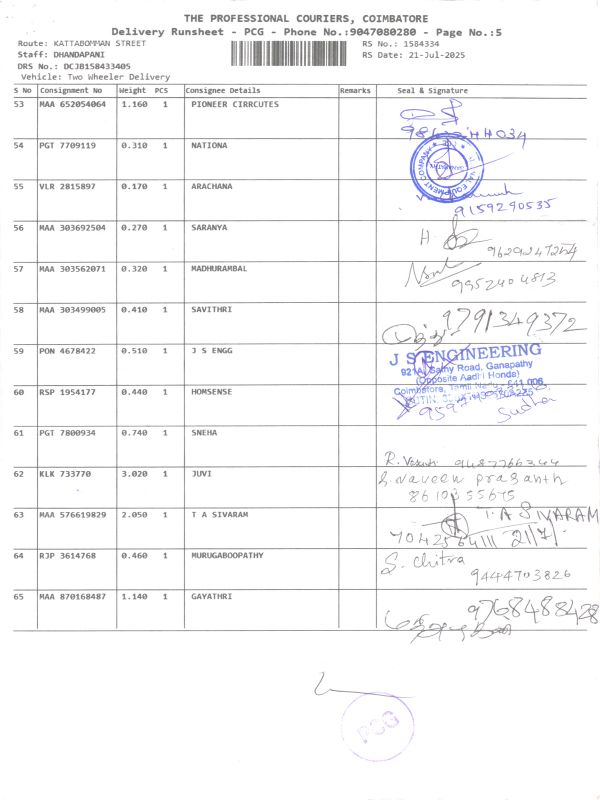 THE PROFESSIONAL COURIERS, COIMBATORE
Delivery Runsheet - PCG - Phone No.:9047080280 - Page No.:5
Route: KATTABOMMAN STREET RS No.: 1584334
Staff: DHANDAPANI RS Date: 21-Jul-2025
DRS No.: DCJB158433405
Vehicle: Two Wheeler Delivery
S No Consignment No Weight PCS Consignee Details Remarks Seal & Signature
53 MAA 652054064 1.160 1 PIONEER CIRRCUTES
54 PGT 7709119 0.310 1 NATIONA
EQUIPMENT COMPANY
55 VLR 2815897 0.170 1 ARACHANA
9159290535
56 MAA 303692504 0.270 1 SARANYA
9629247254
57 MAA 303562071 0.320 1 MADHURAMBAL
9952404813
58 MAA 303499005 0.410 1 SAVITHRI
9791349372
59 PON 4678422 0.510 1 J S ENGG
J S ENGINEERING
921A, Sathy Road, Ganapathy
(Opposite Aadhi Honda)
Coimbatore, Tamil Nadu - 641 006
60 RSP 1954177 0.440 1 HOMSENSE
Sudha
61 PGT 7800934 0.740 1 SNEHA
R. Vasanti 9487766344
62 KLK 733770 3.020 1 JUVI
S. Naveen Prasanth
8610655675
63 MAA 576619829 2.050 1 T A SIVARAM
T. A SIVARAM
7042564111 21/7/
64 RJP 3614768 0.460 1 MURUGABOOPATHY
S. Chitra
9444703826
65 MAA 870168487 1.140 1 GAYATHRI
9768488428
PCG